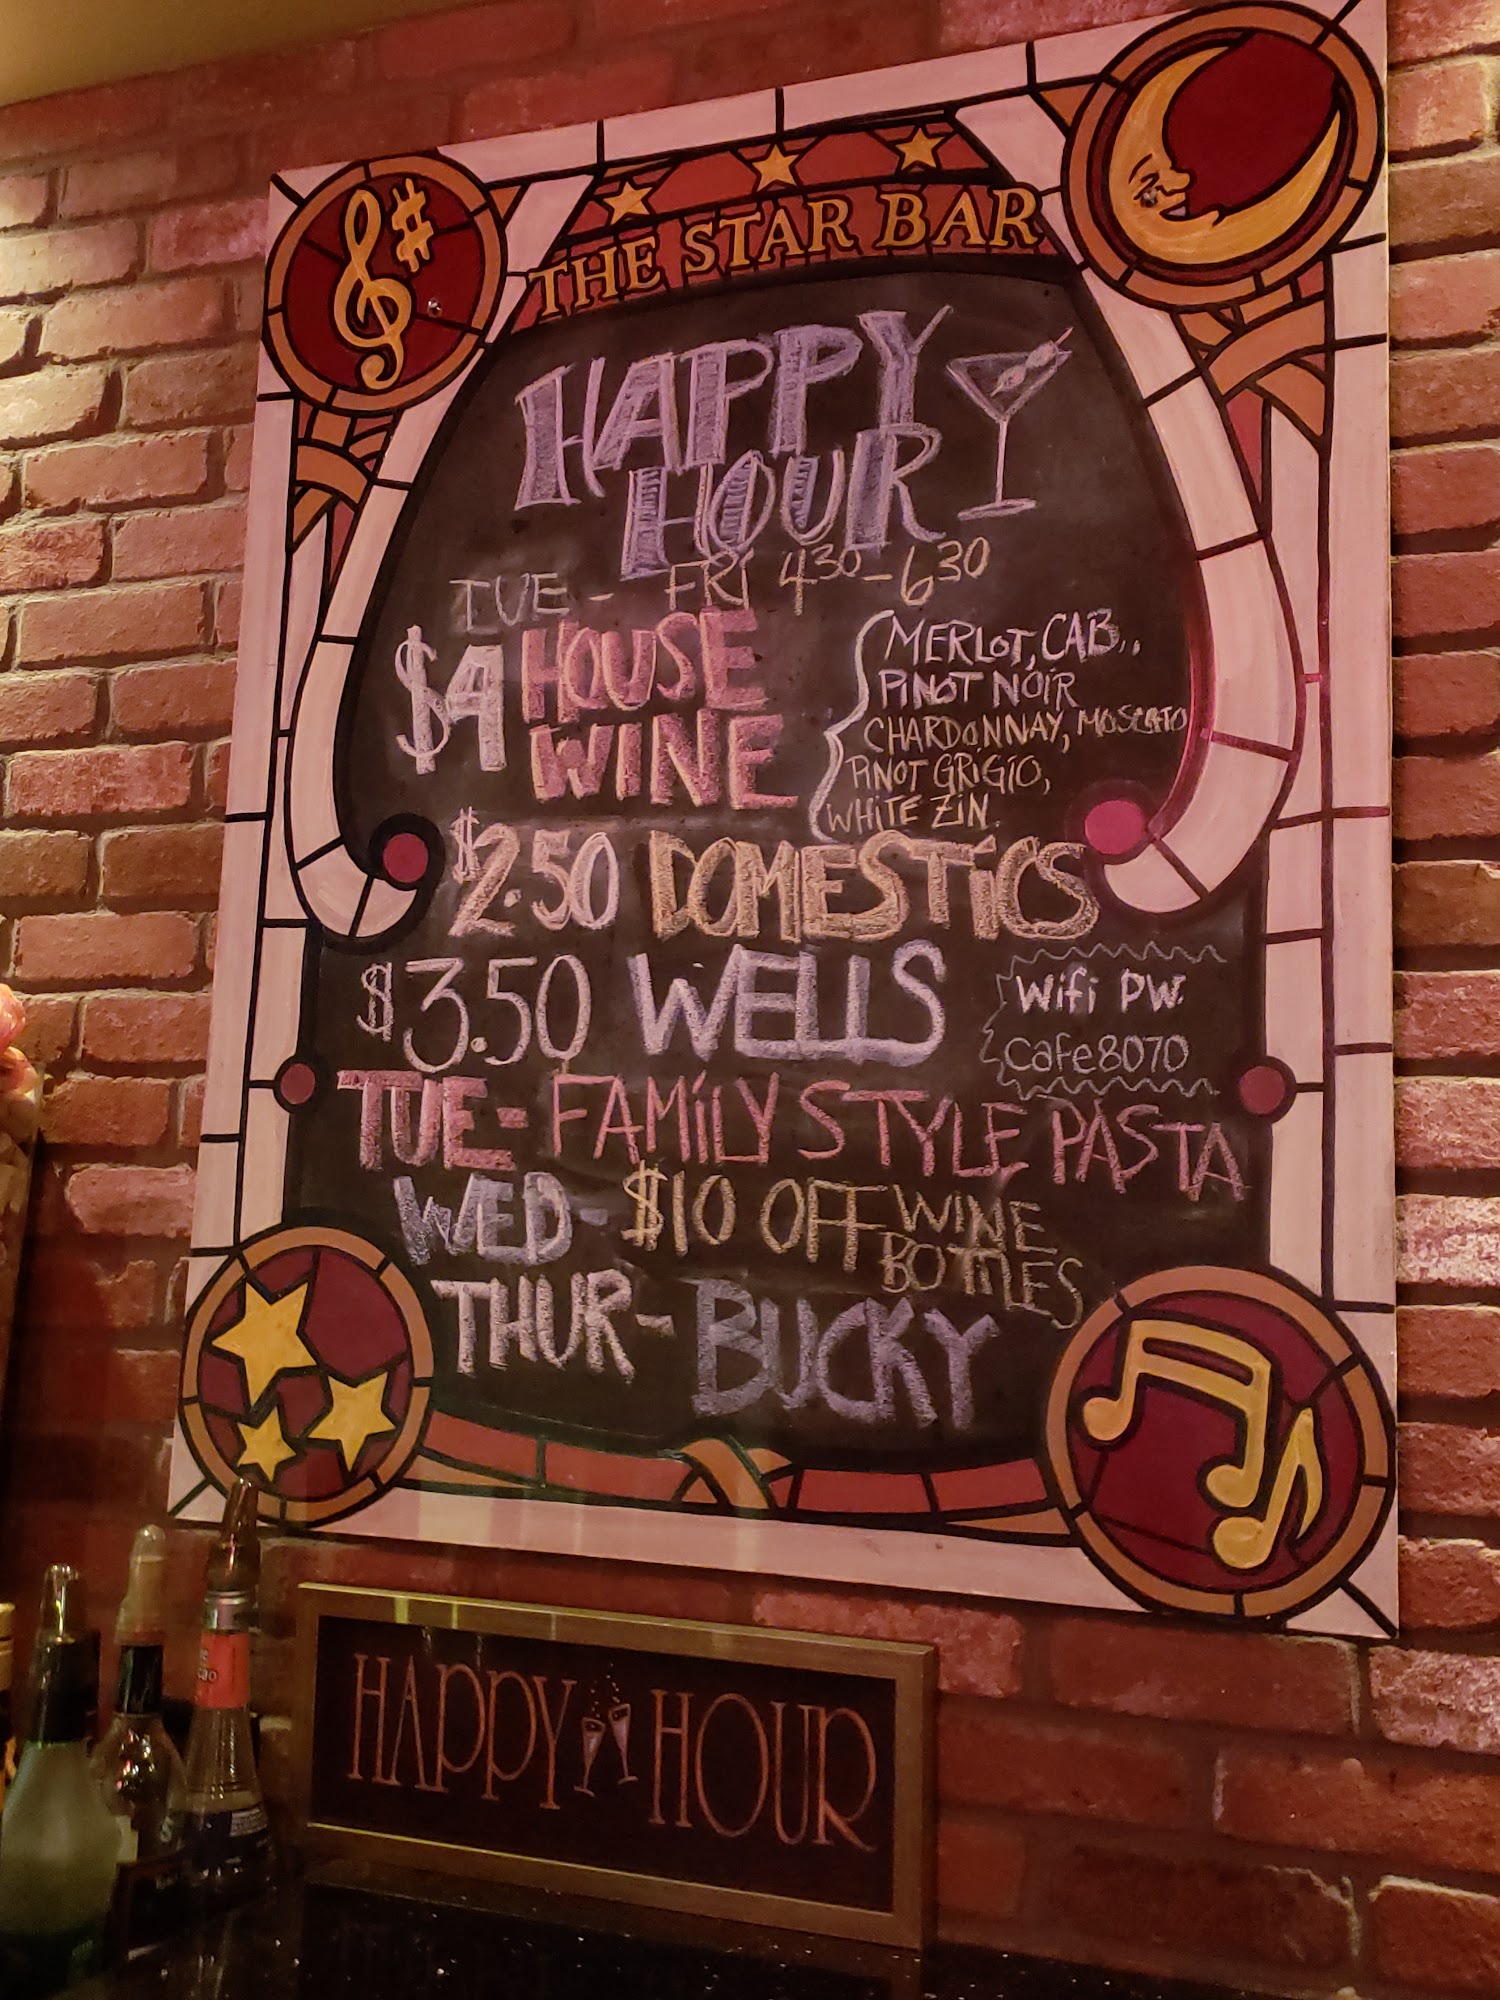 THE STAR BAR
HAPPY
HOUR
TUE - FRI 4:30-6:30
$4 HOUSE
WINE
MERLOT, CAB.,
PINOT NOIR
CHARDONNAY, MOSCATO
PINOT GRIGIO,
WHITE ZIN.
$2.50 DOMESTICS
$3.50 WELLS
Wifi PW.
cafe8070
TUE - FAMILY STYLE PASTA
WED - $10 OFF WINE
BOTTLES
THUR - BUCKY
HAPPY HOUR